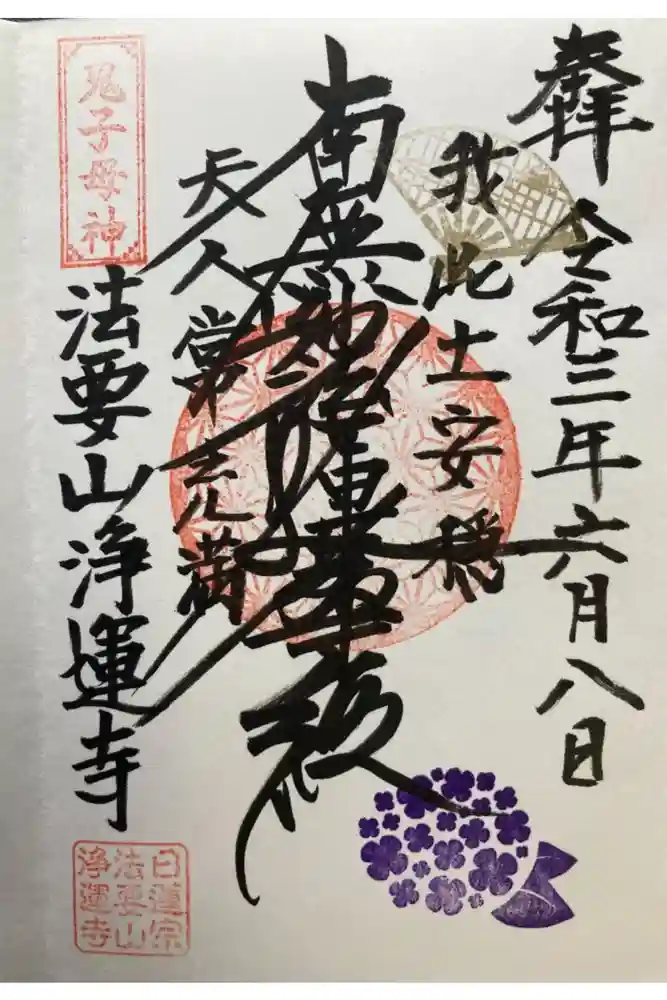 奉拝 令和三年六月八日
我此土安穏
南無妙法蓮華経
天人常充満
鬼子母神
法要山浄運寺
日蓮宗
法要山
浄運寺